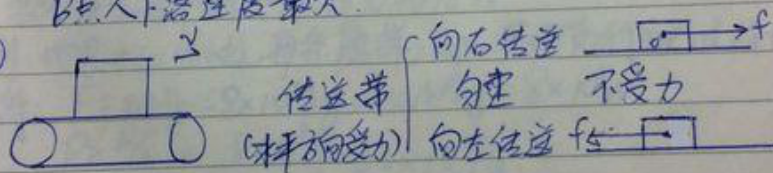 b点人下落速度最大.
传送带
(水平方向受力)
向右传送 f
匀速 不受力
向左传送 f